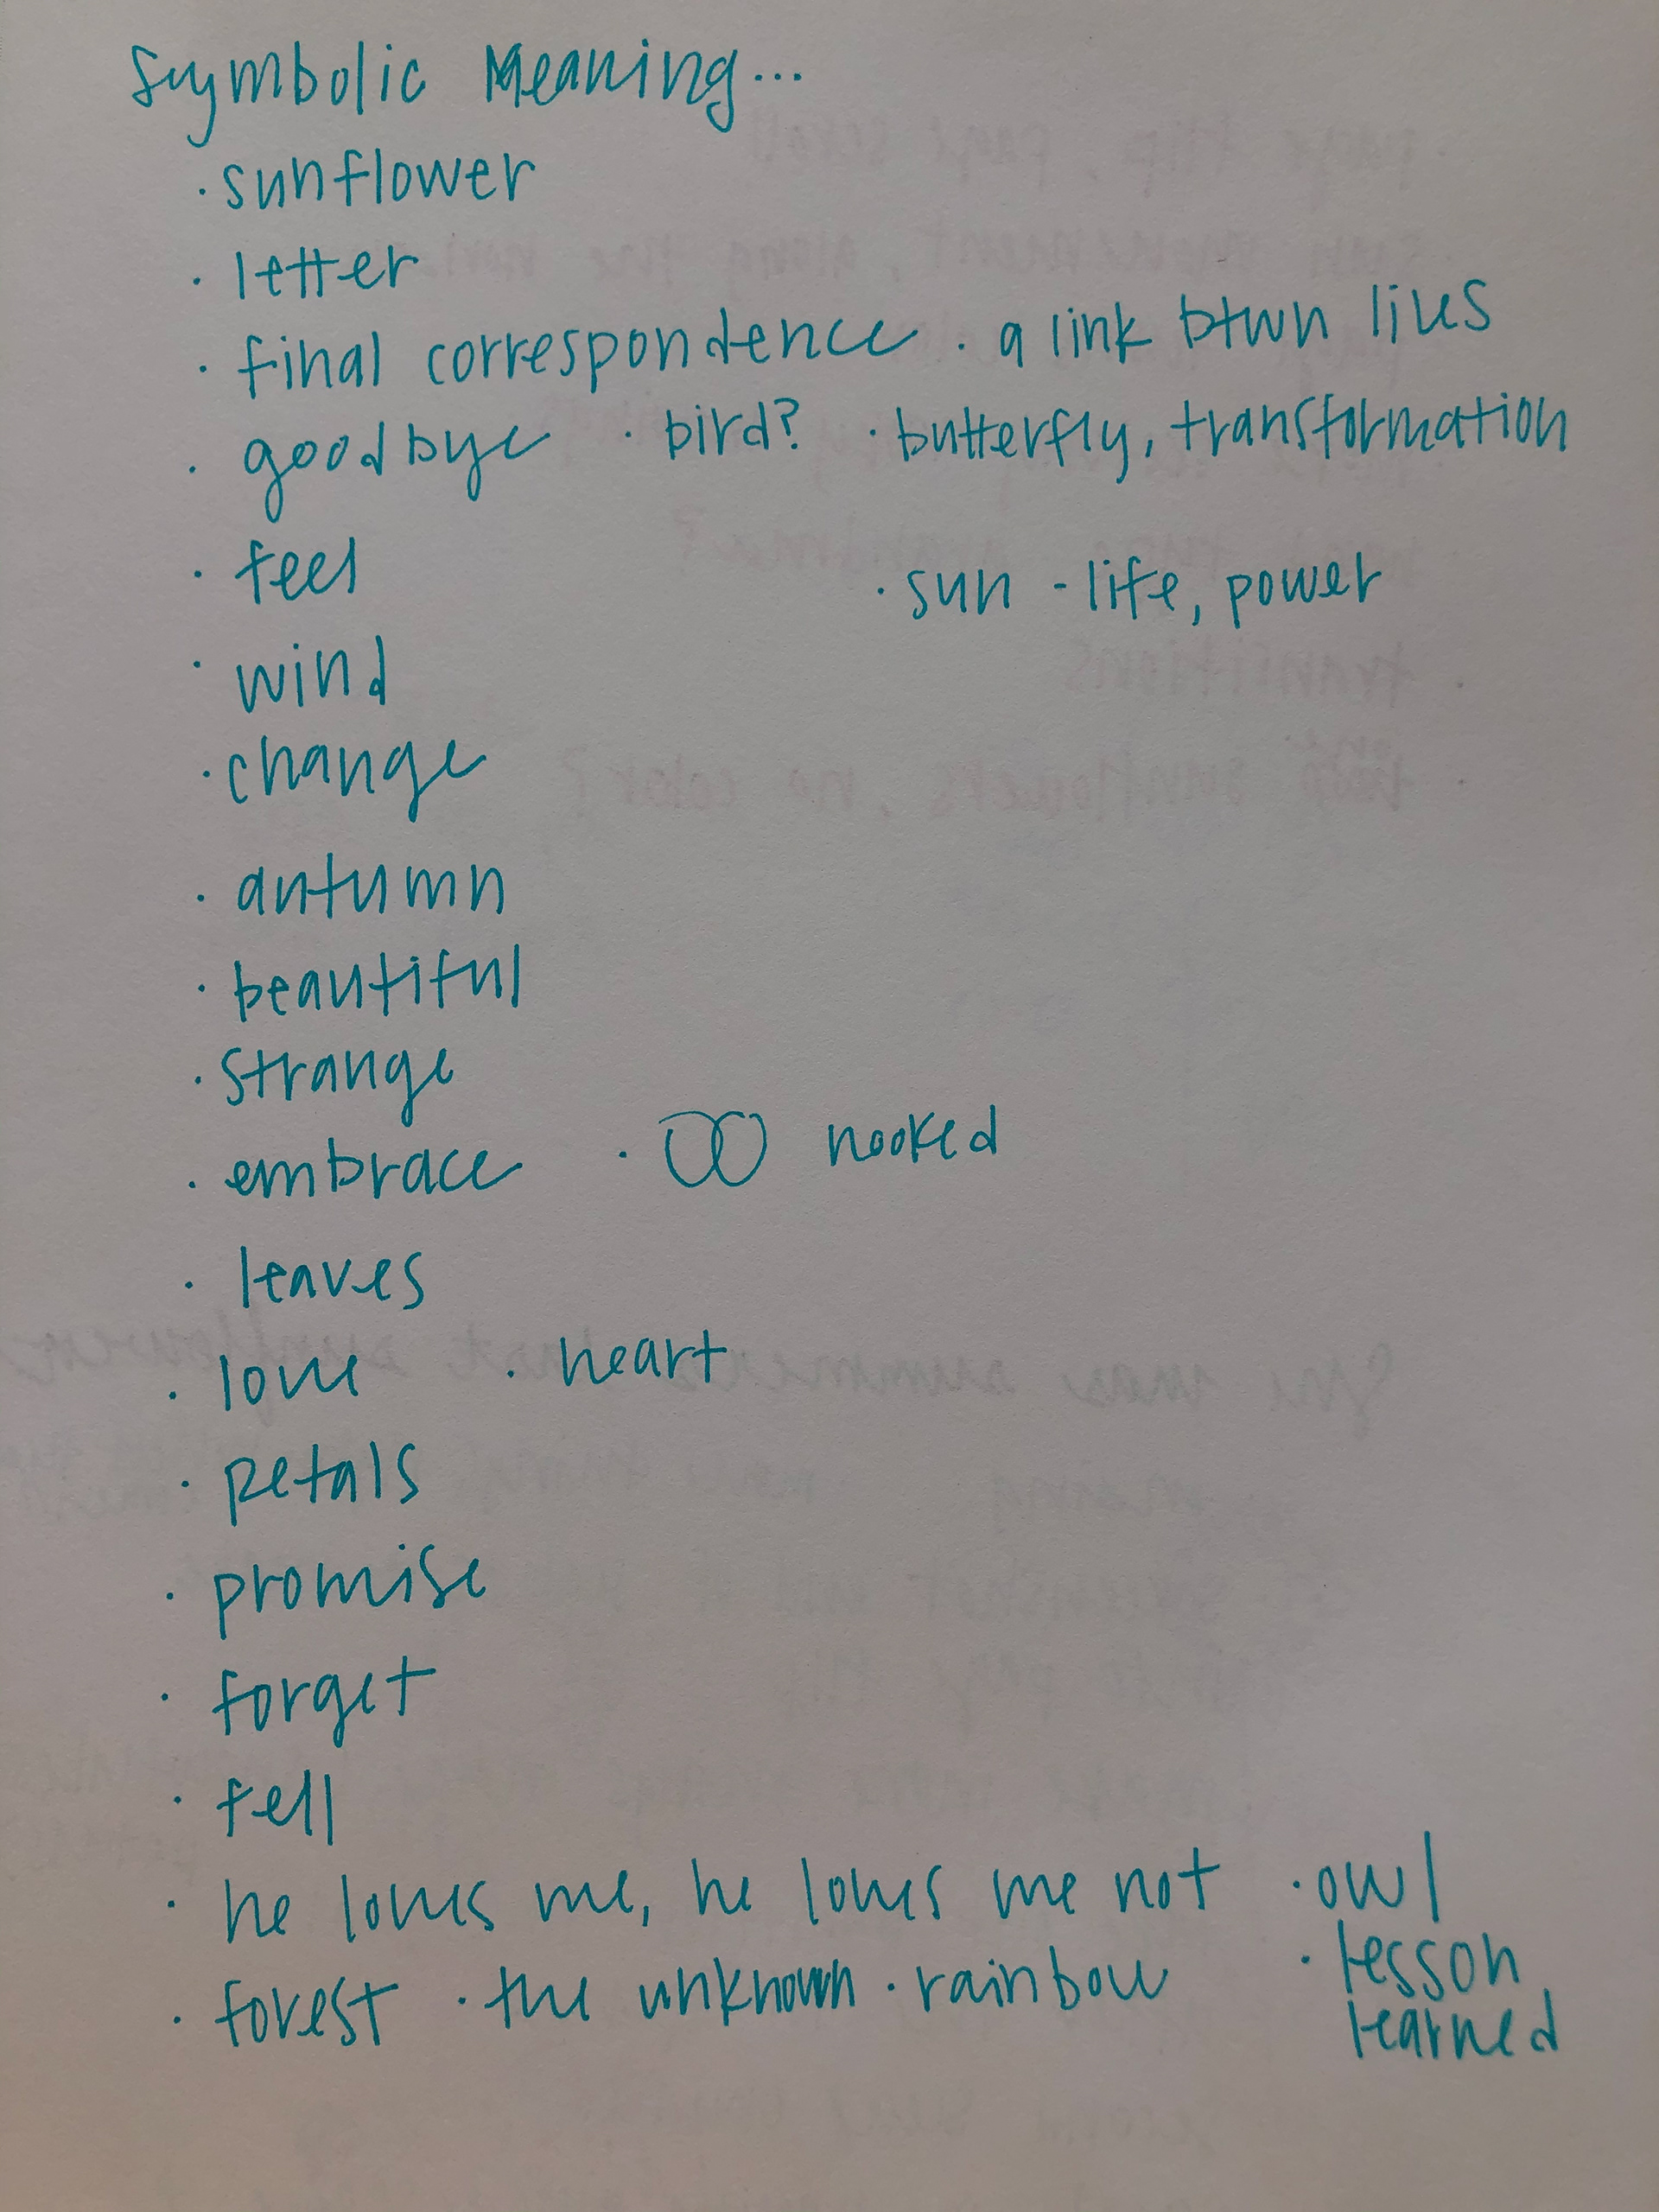 Symbolic Meaning...
· sunflower
· letter
· final correspondence · a link btwn lives
· goodbye · bird? · butterfly, transformation
· feel · sun - life, power
· wind
· change
· autumn
· beautiful
· strange
· embrace · hooked
· leaves
· love · heart
· petals
· promise
· forget
· fell
· he loves me, he loves me not · owl
· forest · the unknown · rainbow · lesson
learned